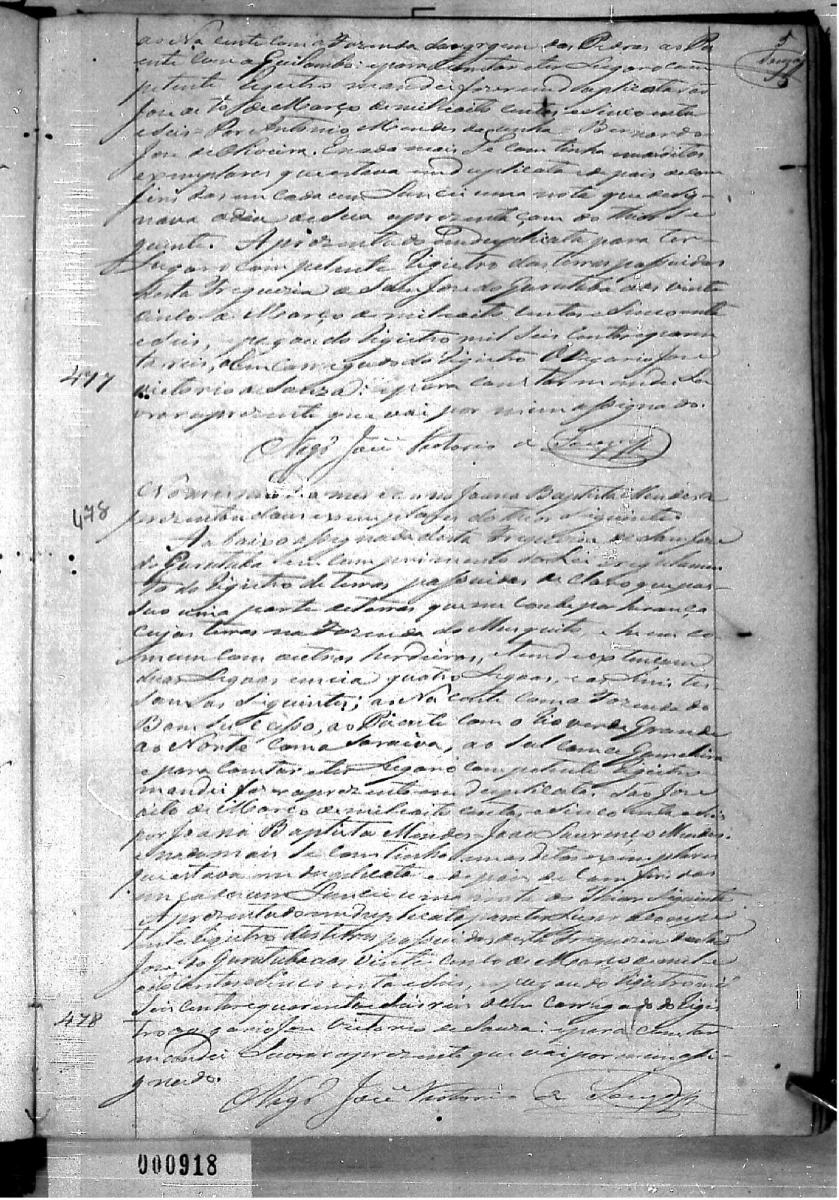 ao Nacente com a Fazenda da vargem das Pedras ao Po
ente com a Quilombo: e para constar e ter Lugar o com
petente Rigistro mandei fazer em duplicata São
Jose de 10 de Março de mil oito centos e sincoenta
e Seis = Por Antonio Mendes da Cunha = Bernardo
Jose de Oliveira. E nada mais Se continha nos ditos
exemplares que estava em duplicata e depois de com
firidas em cada um Lancei uma nota que desig-
nava o dia de Sua aprezentação do theor Se
guinte. Aprezentado em duplicata para ter
Lugar o competente Rigistro das terras possuidas
desta Freguezia de São Jose do Gurutuba aos vinte
cinco de Março de mil oito centos e Sincoenta
e Seis, pagou do Rigistro mil Seis centos e quaren
ta reis, O Emcarregado do Rigistro O Vigario Jose
Victorio de Souza: e para constar mandei La
vrar a prezente que vai por mim assignado.
Vigrº José Victorio de Souza
477
5
Souza
478
No mesmo dia mes e anno Joana Baptista Mendes a
prezentou dous exemplares do theor Siguinte
A abaixo assignada desta Freguezia de São Jose
do Gurutuba em comprimento da Lei e regulamen
to do Rigistro de terras possuidas declaro que pos-
suo uma parte de terras que me coube por herança
cujas terras na Fazenda do Musquito, e he em co
mum com outros herdeiros, e tem de extenção
duas Legoas em cia quatro Legoas, e as Suas tes
soens as Siguintes; ao Nacente com a Fazenda do
Bom Sucésso, ao Poente com o Rio verde Grande
ao Norte com a Saraiva, ao Sul com a Gameleira
e para constar e ter Lugar o competente Rigistro
mandei fazer a prezente em duplicata. São Jose
oito de Março de mil oito centos e Sincoenta e Seis
por Joana Baptista Mendes = João Lourenço Mendes:
e nada mais Se continha nas ditas exemplares
que estava em duplicata e depois de com firidas
em cada um Lancei uma nota do theor Siguinte
Aprezentado em duplicata para ter Lugar o compe
tente Rigistro das terras possuidas desta Freguezia de São
Jose do Gurutuba aos vinte cinco de Março de mil e
oito centos e Sincoenta e Seis, e pagou do Rigistro mil
Seis centos e quarenta e Seis reis o Em carregado do Rigis
tro Vigario Jose Victorio de Souza: e para constar
mandei Lavrar a prezente que vai por mim assi-
gnado.
478
Vigrº José Victorio de Souza
000918